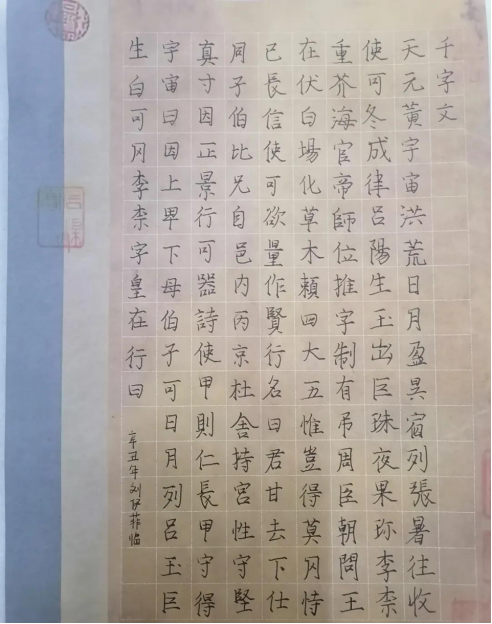 千字文
天元黃宇宙洪荒日月盈昃宿列張暑往收
使可冬成律呂陽生玉出巨珠夜果珍李柰
重芥海官帝師位推字制有吊周臣朝問王
在伏白場化草木賴四大五惟豈得莫罔恃
已長信使可欲量作賢行名曰君甘去下仕
同子伯比兄自邑內丙京杜舍持宮性守堅
真寸因正景行可器詩使甲則仁長甲守得
宇宙曰因上卑下母伯子可日月列呂玉巨
生白可罔李柰字皇在行曰
辛丑年刘伊菲临